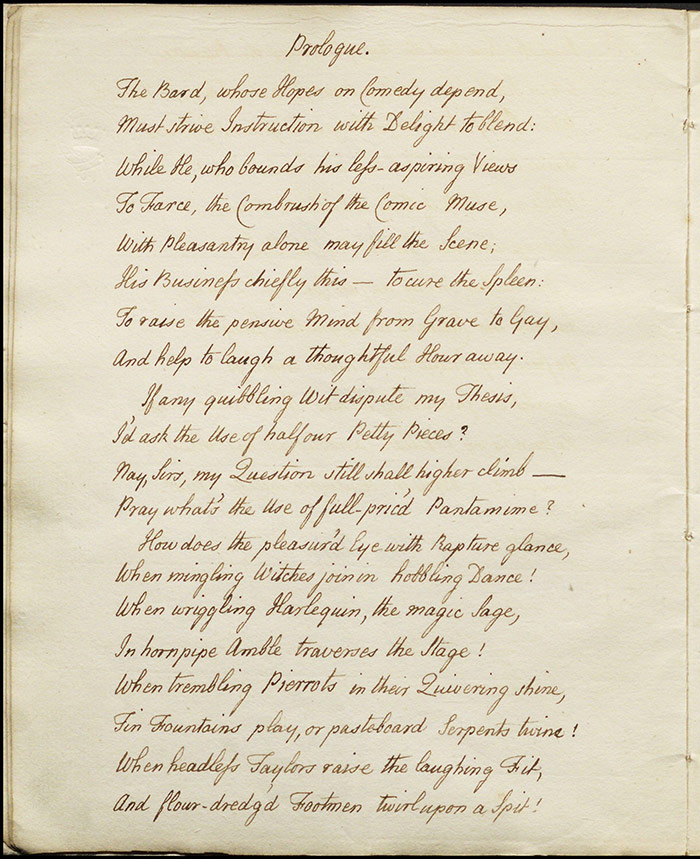 Prologue.
The Bard, whose Hopes on Comedy depend,
Must strive Instruction with Delight to blend:
While He, who bounds his leſs-aspiring Views
To Farce, the Combrush of the Comic Muse,
With Pleasantry alone may fill the Scene;
His Busineſs chiefly this — to cure the Spleen:
To raise the pensive Mind from Grave to Gay,
And help to laugh a thoughtful Hour away.
If any quibbling Wit dispute my Thesis,
I'd ask the Use of half our Petty Pieces?
Nay, Sirs, my Question still shall higher climb —
Pray what's the Use of full-pric'd Pantamime?
How does the pleasur'd Eye with Rapture glance,
When mingling Witches join in hobbling Dance!
When wriggling Harlequin, the magic Sage,
In hornpipe Amble traverses the Stage!
When trembling Pierrots in their Quivering shine,
Tin Fountains play, or pasteboard Serpents twine!
When headleſs Taylors raise the laughing Fit,
And flour-dredg'd Footmen twirl upon a Spit!